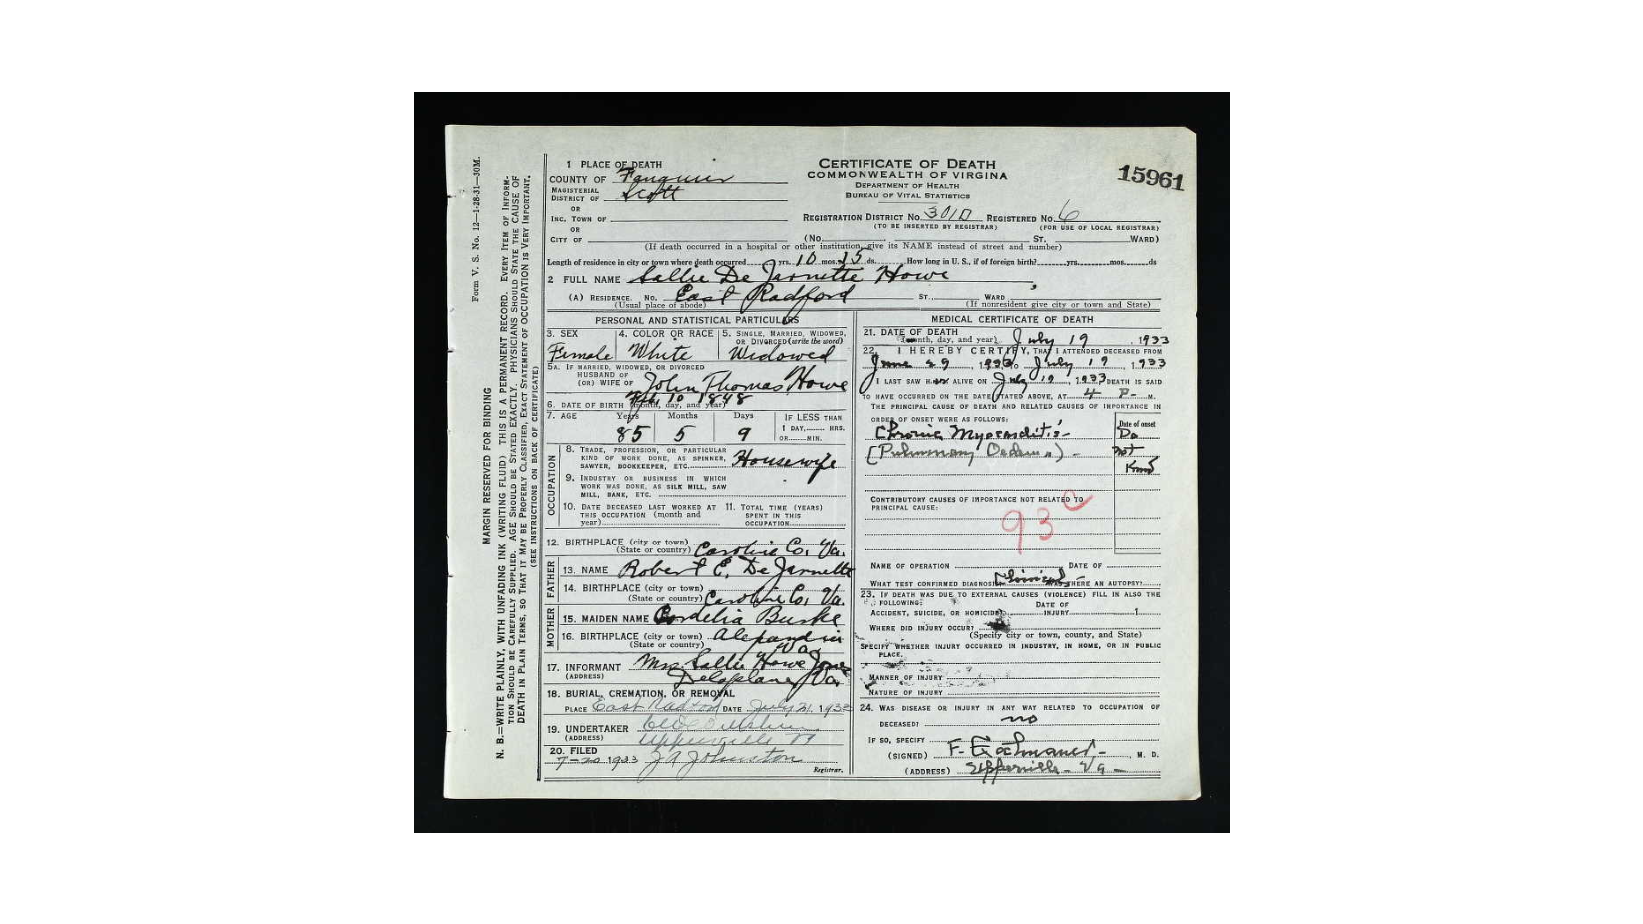 Form V. S. No. 12—1-28-31—30M.
MARGIN RESERVED FOR BINDING
N. B.—WRITE PLAINLY, WITH UNFADING INK (WRITING FLUID) THIS IS A PERMANENT RECORD. EVERY ITEM OF INFORM-
TION SHOULD BE CAREFULLY SUPPLIED. AGE SHOULD BE STATED EXACTLY. PHYSICIANS SHOULD STATE THE CAUSE OF
DEATH IN PLAIN TERMS, SO THAT IT MAY BE PROPERLY CLASSIFIED, EXACT STATEMENT OF OCCUPATION IS VERY IMPORTANT.
(SEE INSTRUCTIONS ON BACK OF CERTIFICATE)
CERTIFICATE OF DEATH
COMMONWEALTH OF VIRGINA
DEPARTMENT OF HEALTH
BUREAU OF VITAL STATISTICS
15961
1 PLACE OF DEATH
COUNTY OF Fauquier
MAGISTERIAL
DISTRICT OF Scott
OR
INC. TOWN OF
OR
CITY OF
REGISTRATION DISTRICT NO. 301D REGISTERED NO. 6
(TO BE INSERTED BY REGISTRAR) (FOR USE OF LOCAL REGISTRAR)
(No. ST. WARD)
(If death occurred in a hospital or other institution, give its NAME instead of street and number)
Length of residence in city or town where death occurred yrs. 10 mos. 15 ds. How long in U. S., if of foreign birth? yrs. mos. ds
2 FULL NAME Sallie De Jarnette Howe
(A) RESIDENCE. No. East Radford ST. WARD
(Usual place of abode) (If nonresident give city or town and State)
PERSONAL AND STATISTICAL PARTICULARS
3. SEX 4. COLOR OR RACE 5. SINGLE, MARRIED, WIDOWED,
OR DIVORCED (write the word)
Female White Widowed
5A. IF MARRIED, WIDOWED, OR DIVORCED
HUSBAND OF
(OR) WIFE OF John Thomas Howe
6. DATE OF BIRTH (month, day, and year) Feb 10 1848
7. AGE Years Months Days IF LESS THAN
1 DAY, HRS.
OR MIN.
85 5 9
OCCUPATION
8. TRADE, PROFESSION, OR PARTICULAR
KIND OF WORK DONE, AS SPINNER,
SAWYER, BOOKKEEPER, ETC. Housewife
9. INDUSTRY OR BUSINESS IN WHICH
WORK WAS DONE, AS SILK MILL, SAW
MILL, BANK, ETC.
10. DATE DECEASED LAST WORKED AT 11. TOTAL TIME (YEARS)
THIS OCCUPATION (month and SPENT IN THIS
year) OCCUPATION
12. BIRTHPLACE (city or town)
(State or country) Caroline Co, Va.
FATHER
13. NAME Robert E. De Jarnette
14. BIRTHPLACE (city or town)
(State or country) Caroline Co, Va.
MOTHER
15. MAIDEN NAME Cordelia Burke
16. BIRTHPLACE (city or town) Alexandria
(State or country) Va.
17. INFORMANT Mrs. Sallie Howe Jones
(ADDRESS) Delaplane, Va.
18. BURIAL, CREMATION, OR REMOVAL
PLACE East Radford DATE July 21, 1933
19. UNDERTAKER
(ADDRESS) Upperville Va
20. FILED
7-20 1933 J A Johnston
Registrar.
MEDICAL CERTIFICATE OF DEATH
21. DATE OF DEATH
(month, day, and year) July 19, 1933
22. I HEREBY CERTIFY, THAT I ATTENDED DECEASED FROM
June 29, 1933, TO July 19, 1933
I LAST SAW H ALIVE ON July 19, 1933 DEATH IS SAID
TO HAVE OCCURRED ON THE DATE STATED ABOVE, AT 4 P- M.
THE PRINCIPAL CAUSE OF DEATH AND RELATED CAUSES OF IMPORTANCE IN
ORDER OF ONSET WERE AS FOLLOWS:
Date of onset
Chronic Myocarditis- Do
(Pulmonary Oedema) - not
Know
CONTRIBUTORY CAUSES OF IMPORTANCE NOT RELATED TO
PRINCIPAL CAUSE:
93 c
NAME OF OPERATION DATE OF
WHAT TEST CONFIRMED DIAGNOSIS Clinical WAS THERE AN AUTOPSY?
23. IF DEATH WAS DUE TO EXTERNAL CAUSES (VIOLENCE) FILL IN ALSO THE
FOLLOWING:
DATE OF
ACCIDENT, SUICIDE, OR HOMICIDE INJURY 1
WHERE DID INJURY OCCUR?
(Specify city or town, county, and State)
SPECIFY WHETHER INJURY OCCURRED IN INDUSTRY, IN HOME, OR IN PUBLIC
PLACE.
MANNER OF INJURY
NATURE OF INJURY
24. WAS DISEASE OR INJURY IN ANY WAY RELATED TO OCCUPATION OF
DECEASED? no
IF SO, SPECIFY
(SIGNED) F. M. D.
(ADDRESS) Upperville - Va -